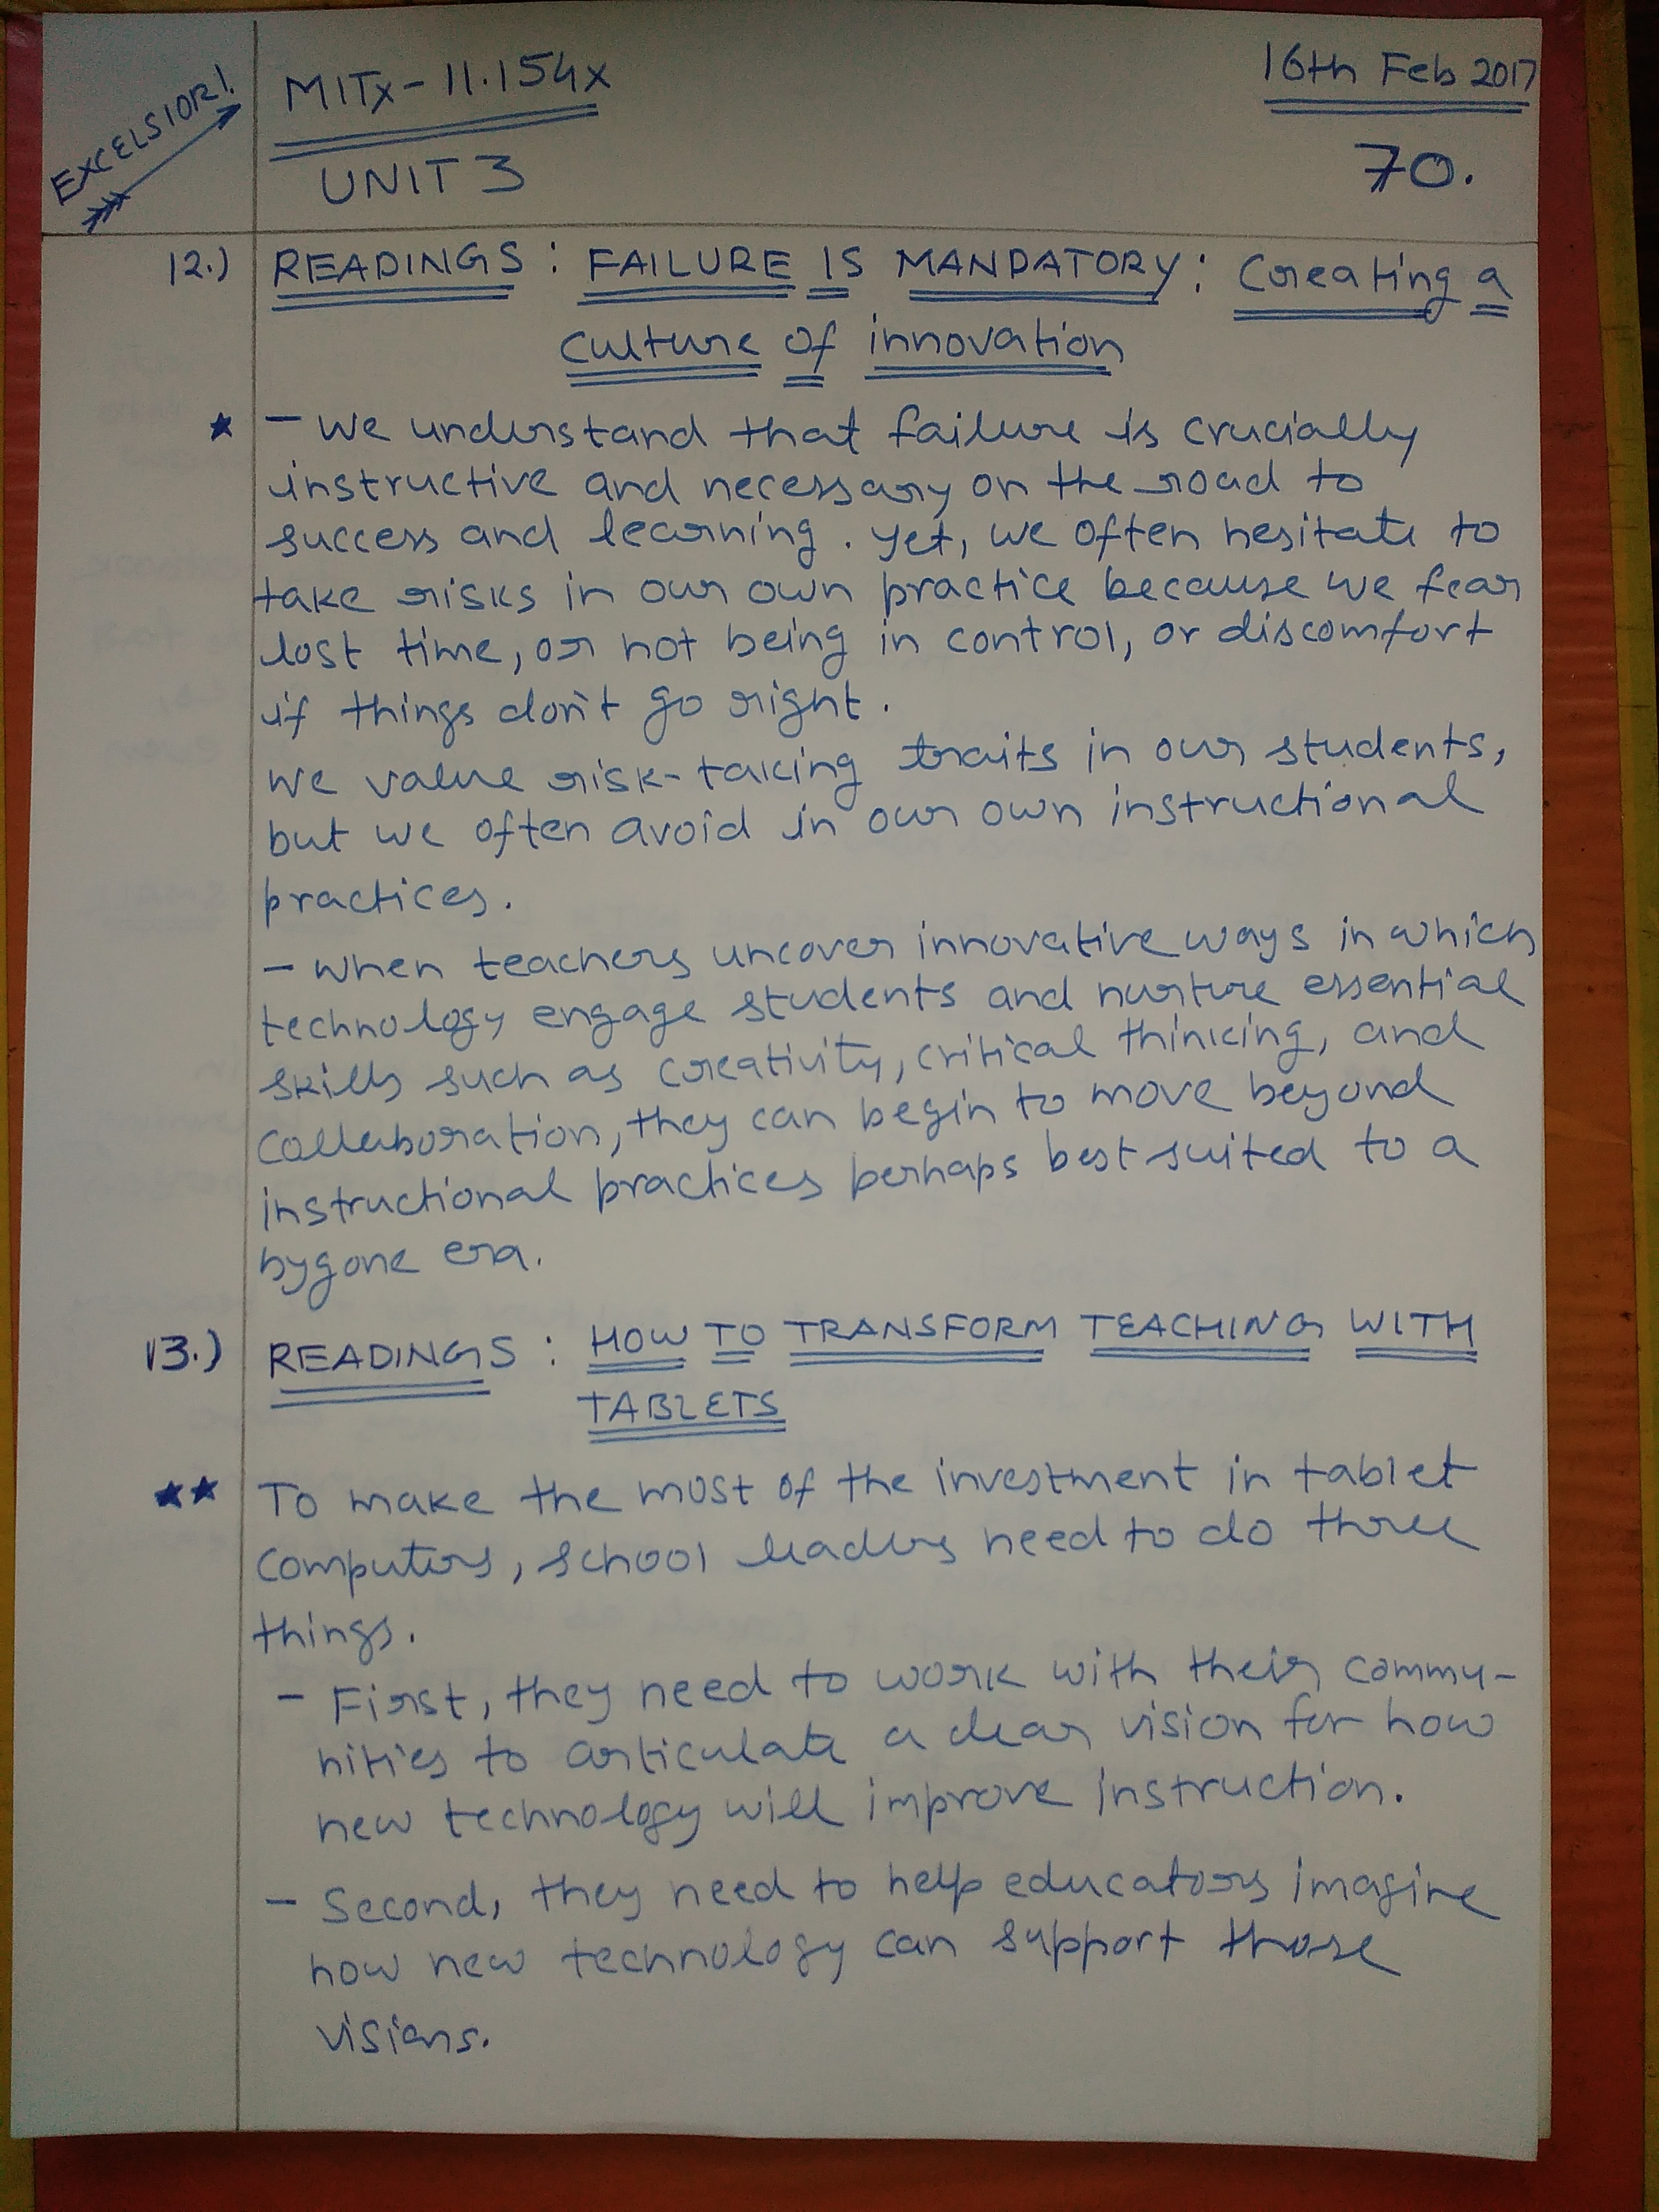 EXCELSIOR!
MITx - 11.154x
16th Feb 2017
UNIT 3
70.
12.) READINGS : FAILURE IS MANDATORY : Creating a
culture of innovation
★ - We understand that failure is crucially
instructive and necessary on the road to
success and learning. Yet, we often hesitate to
take risks in our own practice because we fear
lost time, or not being in control, or discomfort
if things don't go right.
We value risk-taking traits in our students,
but we often avoid in our own instructional
practices.
- When teachers uncover innovative ways in which
technology engage students and nurture essential
skills such as creativity, critical thinking, and
collaboration, they can begin to move beyond
instructional practices perhaps best suited to a
bygone era.
13.) READINGS : HOW TO TRANSFORM TEACHING WITH
TABLETS
★★ To make the most of the investment in tablet
computers, school leaders need to do three
things.
- First, they need to work with their commu-
nities to articulate a clear vision for how
new technology will improve instruction.
- Second, they need to help educators imagine
how new technology can support those
visions.